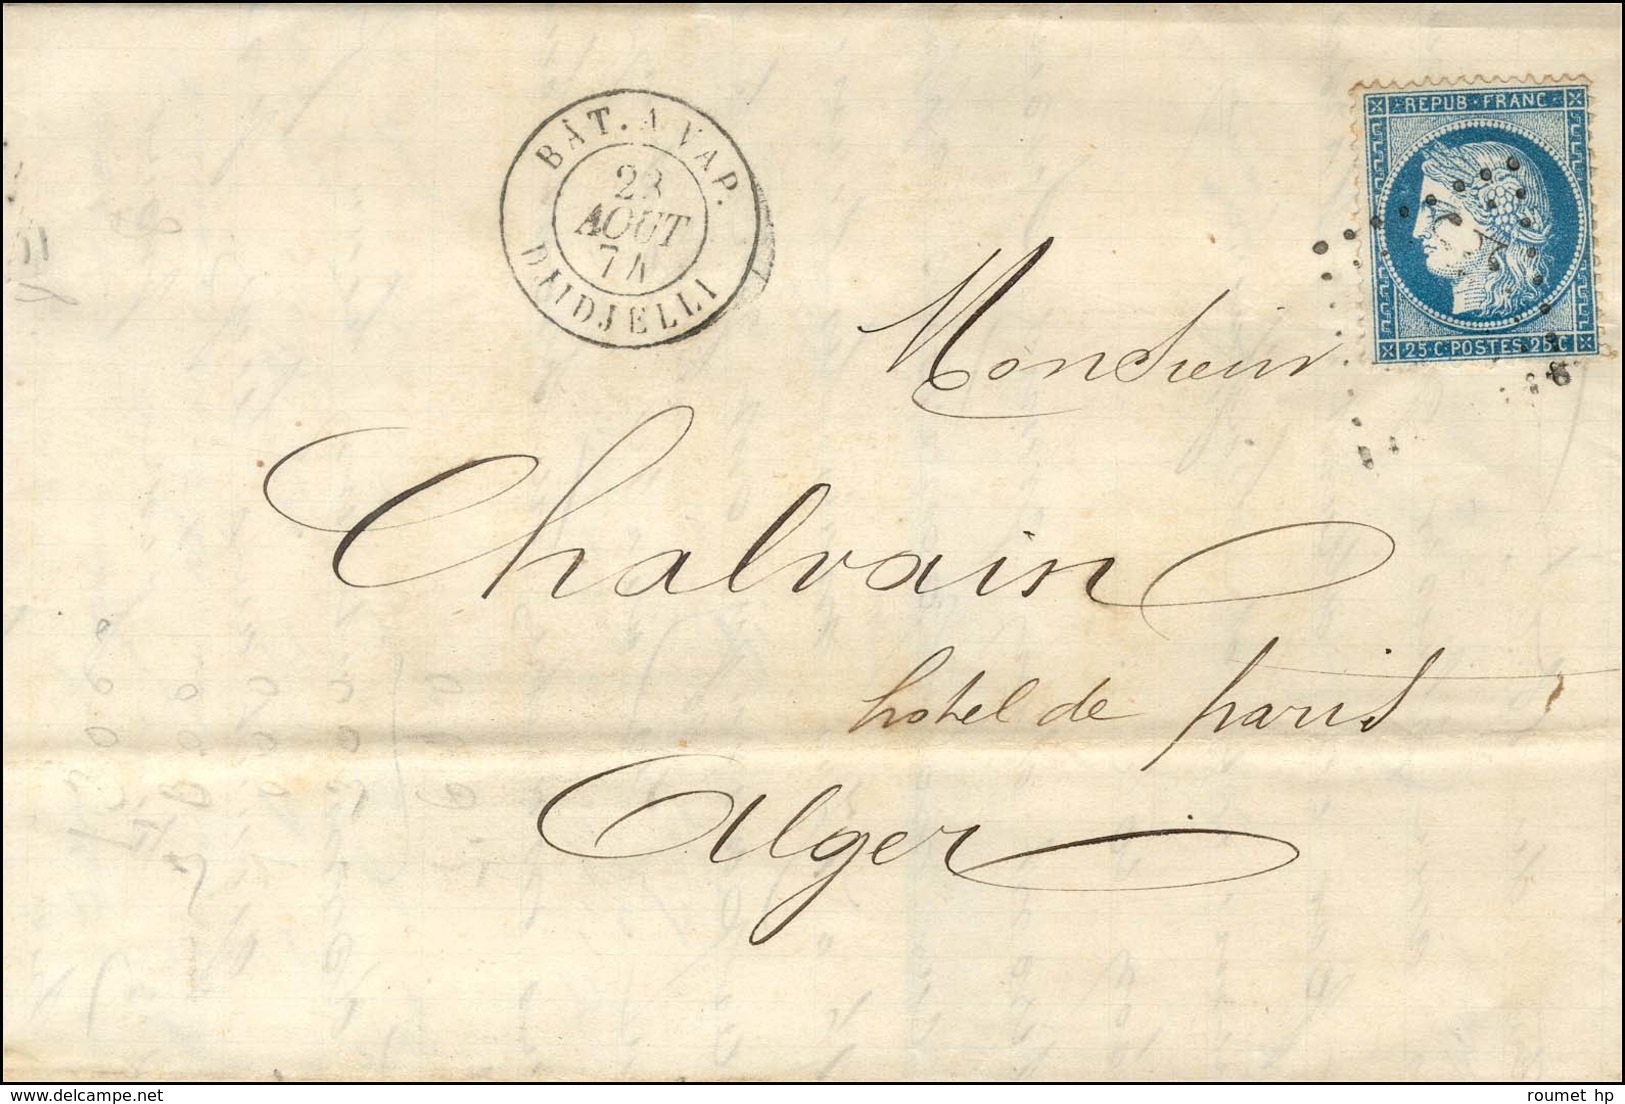 BÂT. A VAP.
23
AOUT
74
DJIDJELLI
REPUB·FRANC
25·C·POSTES·25·C
Monsieur
Chalvain
hotel de paris
Alger
delcampe.net
roumet hp